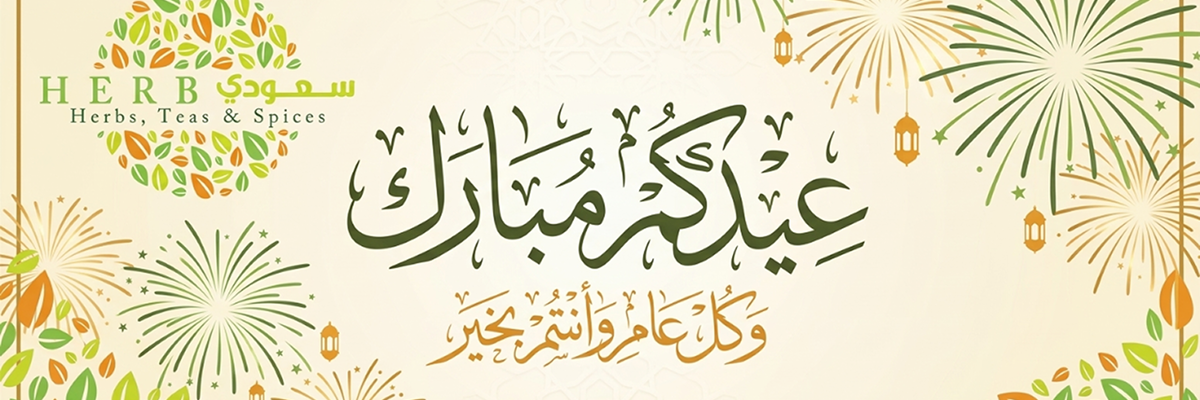 HERB سعودي
Herbs, Teas & Spices
عِيْدكُمْ مُبَارَك
وَكُل عَامِ وَأَنْتُمْ بِخَيَر